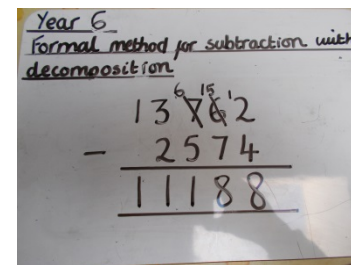 Year 6
Formal method for subtraction with
decomposition
6 15 1
13762
- 2574
11188